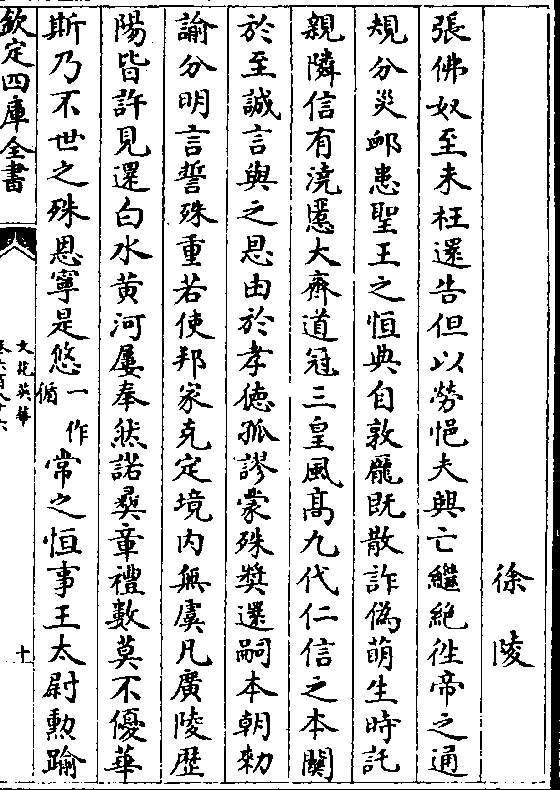 徐陵
張佛奴至未枉還告但以勞悒夫興亡繼絶徃帝之通
規分災䘏患聖王之恒典自敦龎既散詐偽萌生時託
親隣信有澆慝大齊道冠三皇風髙九代仁信之本關
於至誠言與之恩由於孝徳孤謬蒙殊奬還嗣本朝勅
諭分明言誓殊重若使邦家克定境内無虞凡廣陵歴
陽皆許見還白水黄河屢奉然諾彛章禮數莫不優華
斯乃不世之殊恩寧是悠一作循常之恒事王太尉勲踰
欽定四庫全書
文苑英華
卷六百八十六
十